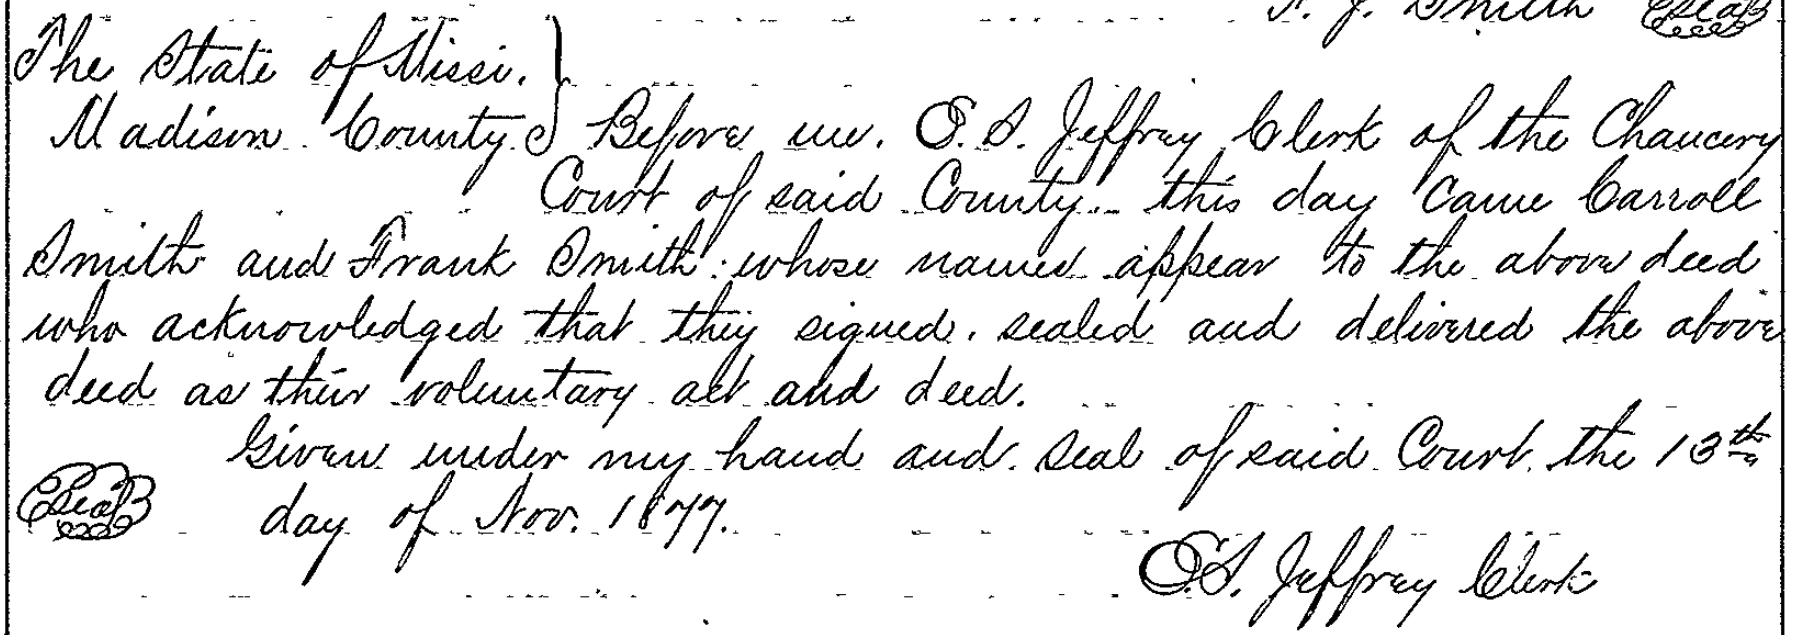 F. J. Smith Seal
The State of Missi. }
Madison County } Before me. E. S. Jeffrey Clerk of the Chancery
Court of said County this day came Carroll
Smith and Frank Smith whose names appear to the above deed
who acknowledged that they signed, sealed and delivered the above
deed as their voluntary act and deed.
Given under my hand and seal of said Court the 13th
Seal day of Nov. 1877.
E. S. Jeffrey Clerk